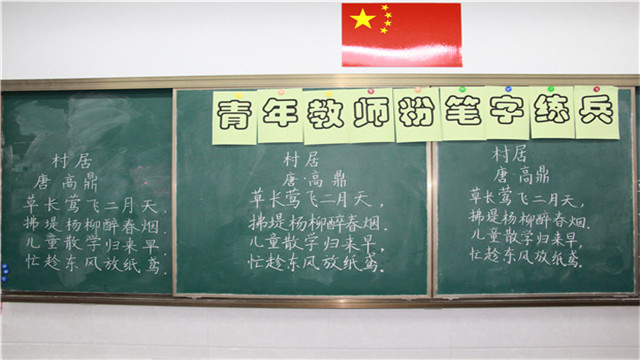 青年教师粉笔字练兵
村居
唐 高鼎
草长莺飞二月天,
拂堤杨柳醉春烟.
儿童散学归来早
忙趁东风放纸鸢.
村居
唐·高鼎
草长莺飞二月天,
拂堤杨柳醉春烟.
儿童散学归来早,
忙趁东风放纸鸢.
村居
唐 高鼎
草长莺飞二月天,
拂堤杨柳醉春烟.
儿童散学归来早,
忙趁东风放纸鸢.